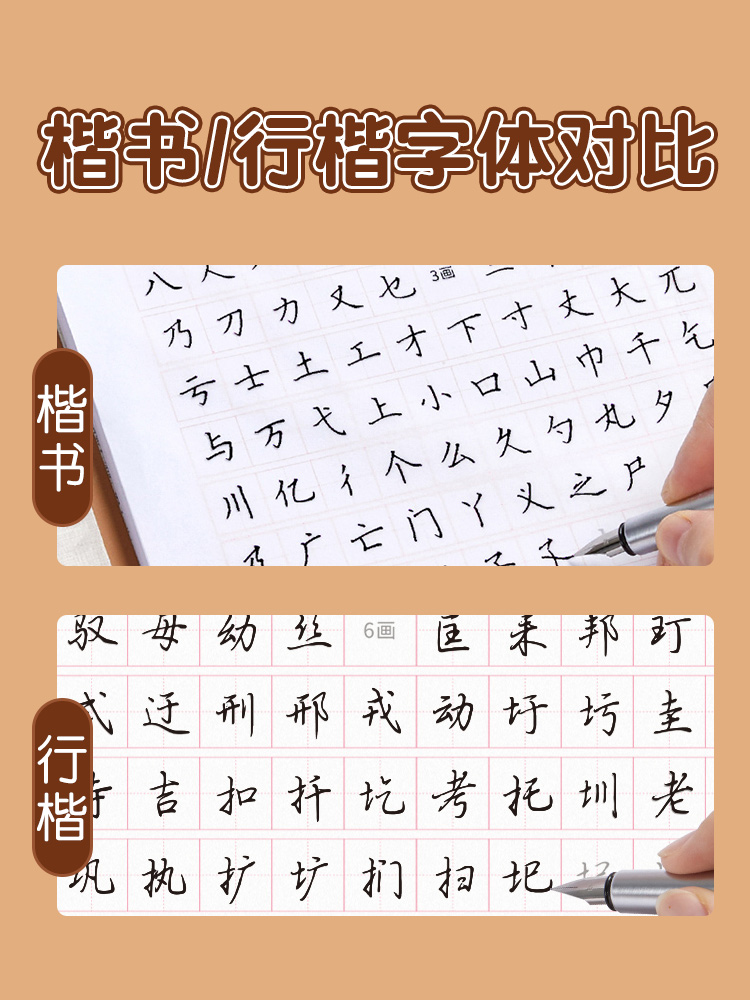 楷书/行楷字体对比
楷书
八
3画
乃刀力又也
亏士土工才下寸丈大兀
与万弋上小口山巾千乞
川亿彳个么久勺丸夕
及广亡门丫义之尸
子
行楷
驭母幼丝6画匡耒邦玎
式迂刑邢戎动圩圬圭
寺吉扣扦圪考托圳老
巩执扩圹扪扫圯